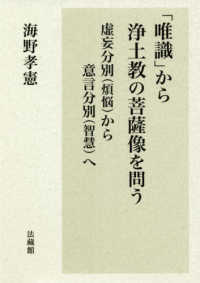 「唯識」から
浄土教の菩薩像を問う
虚妄分別（煩悩）から
意言分別（智慧）へ
海野孝憲
法藏館